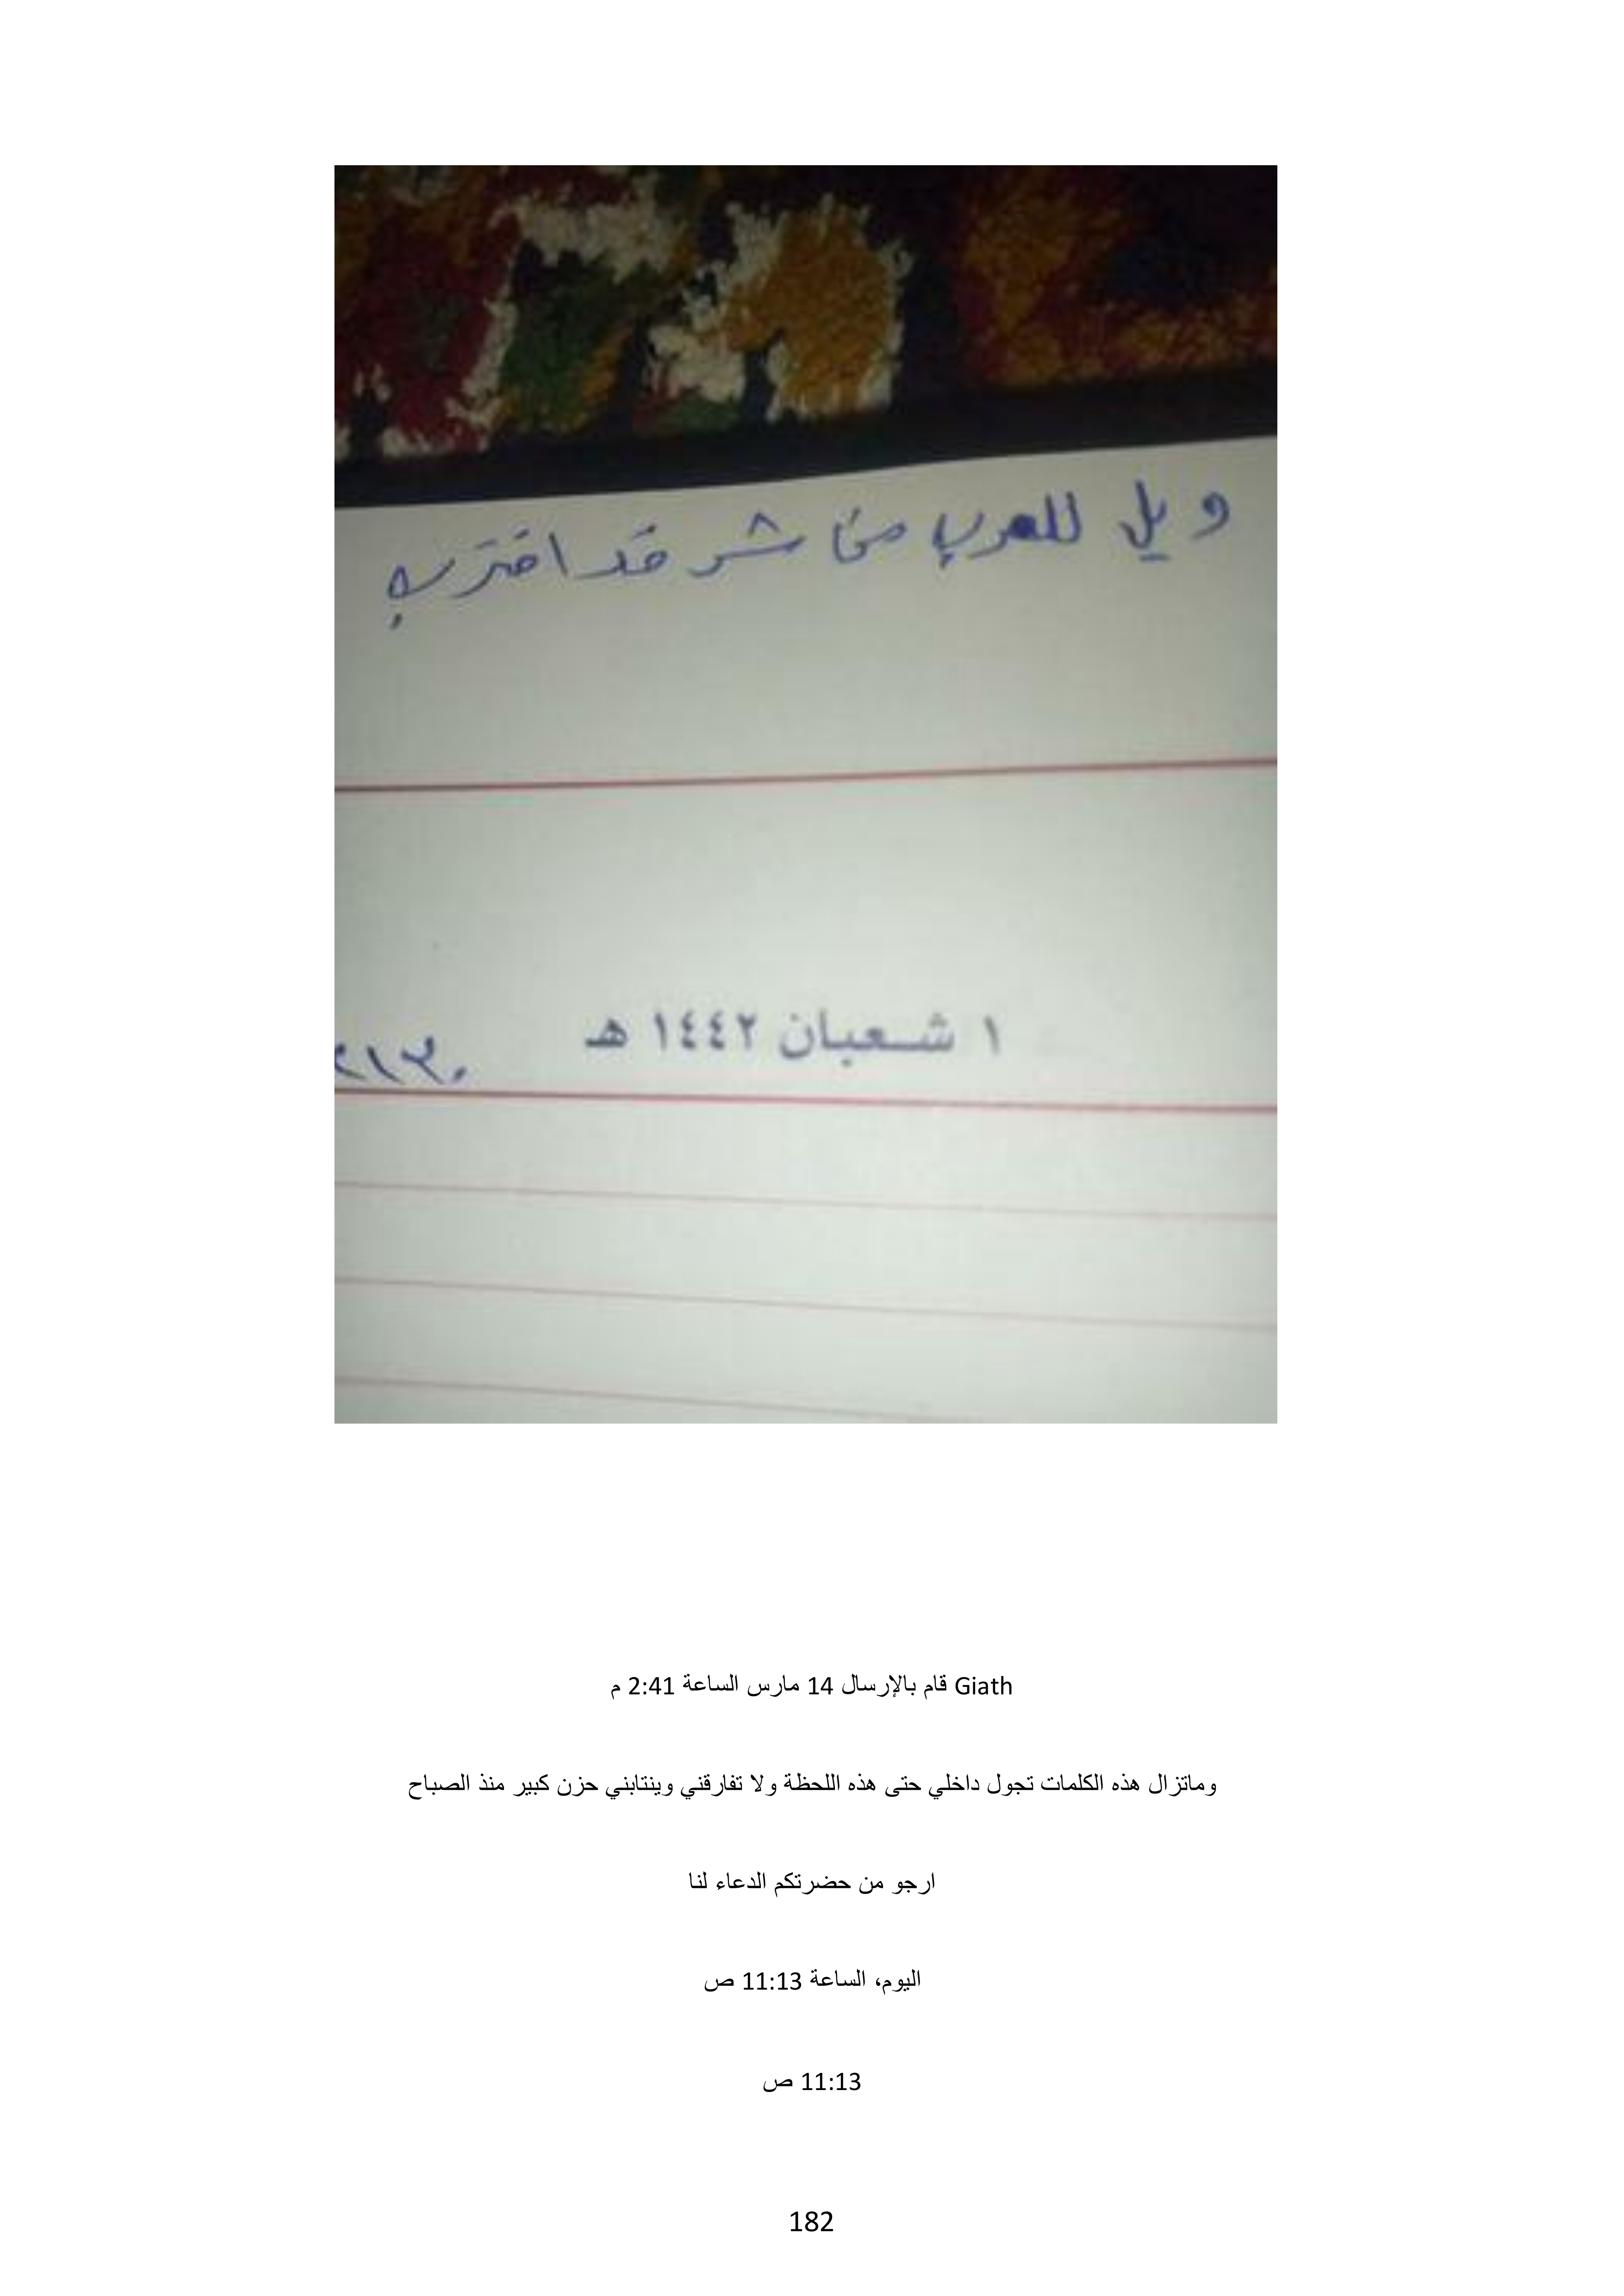 ويل للعرب من شر قد اقترب
١ شعبان ١٤٤٢ هـ
Giath قام بالإرسال 14 مارس الساعة 2:41 م
وماتزال هذه الكلمات تجول داخلي حتى هذه اللحظة ولا تفارقني وينتابني حزن كبير منذ الصباح
ارجو من حضرتكم الدعاء لنا
اليوم، الساعة 11:13 ص
11:13 ص
182